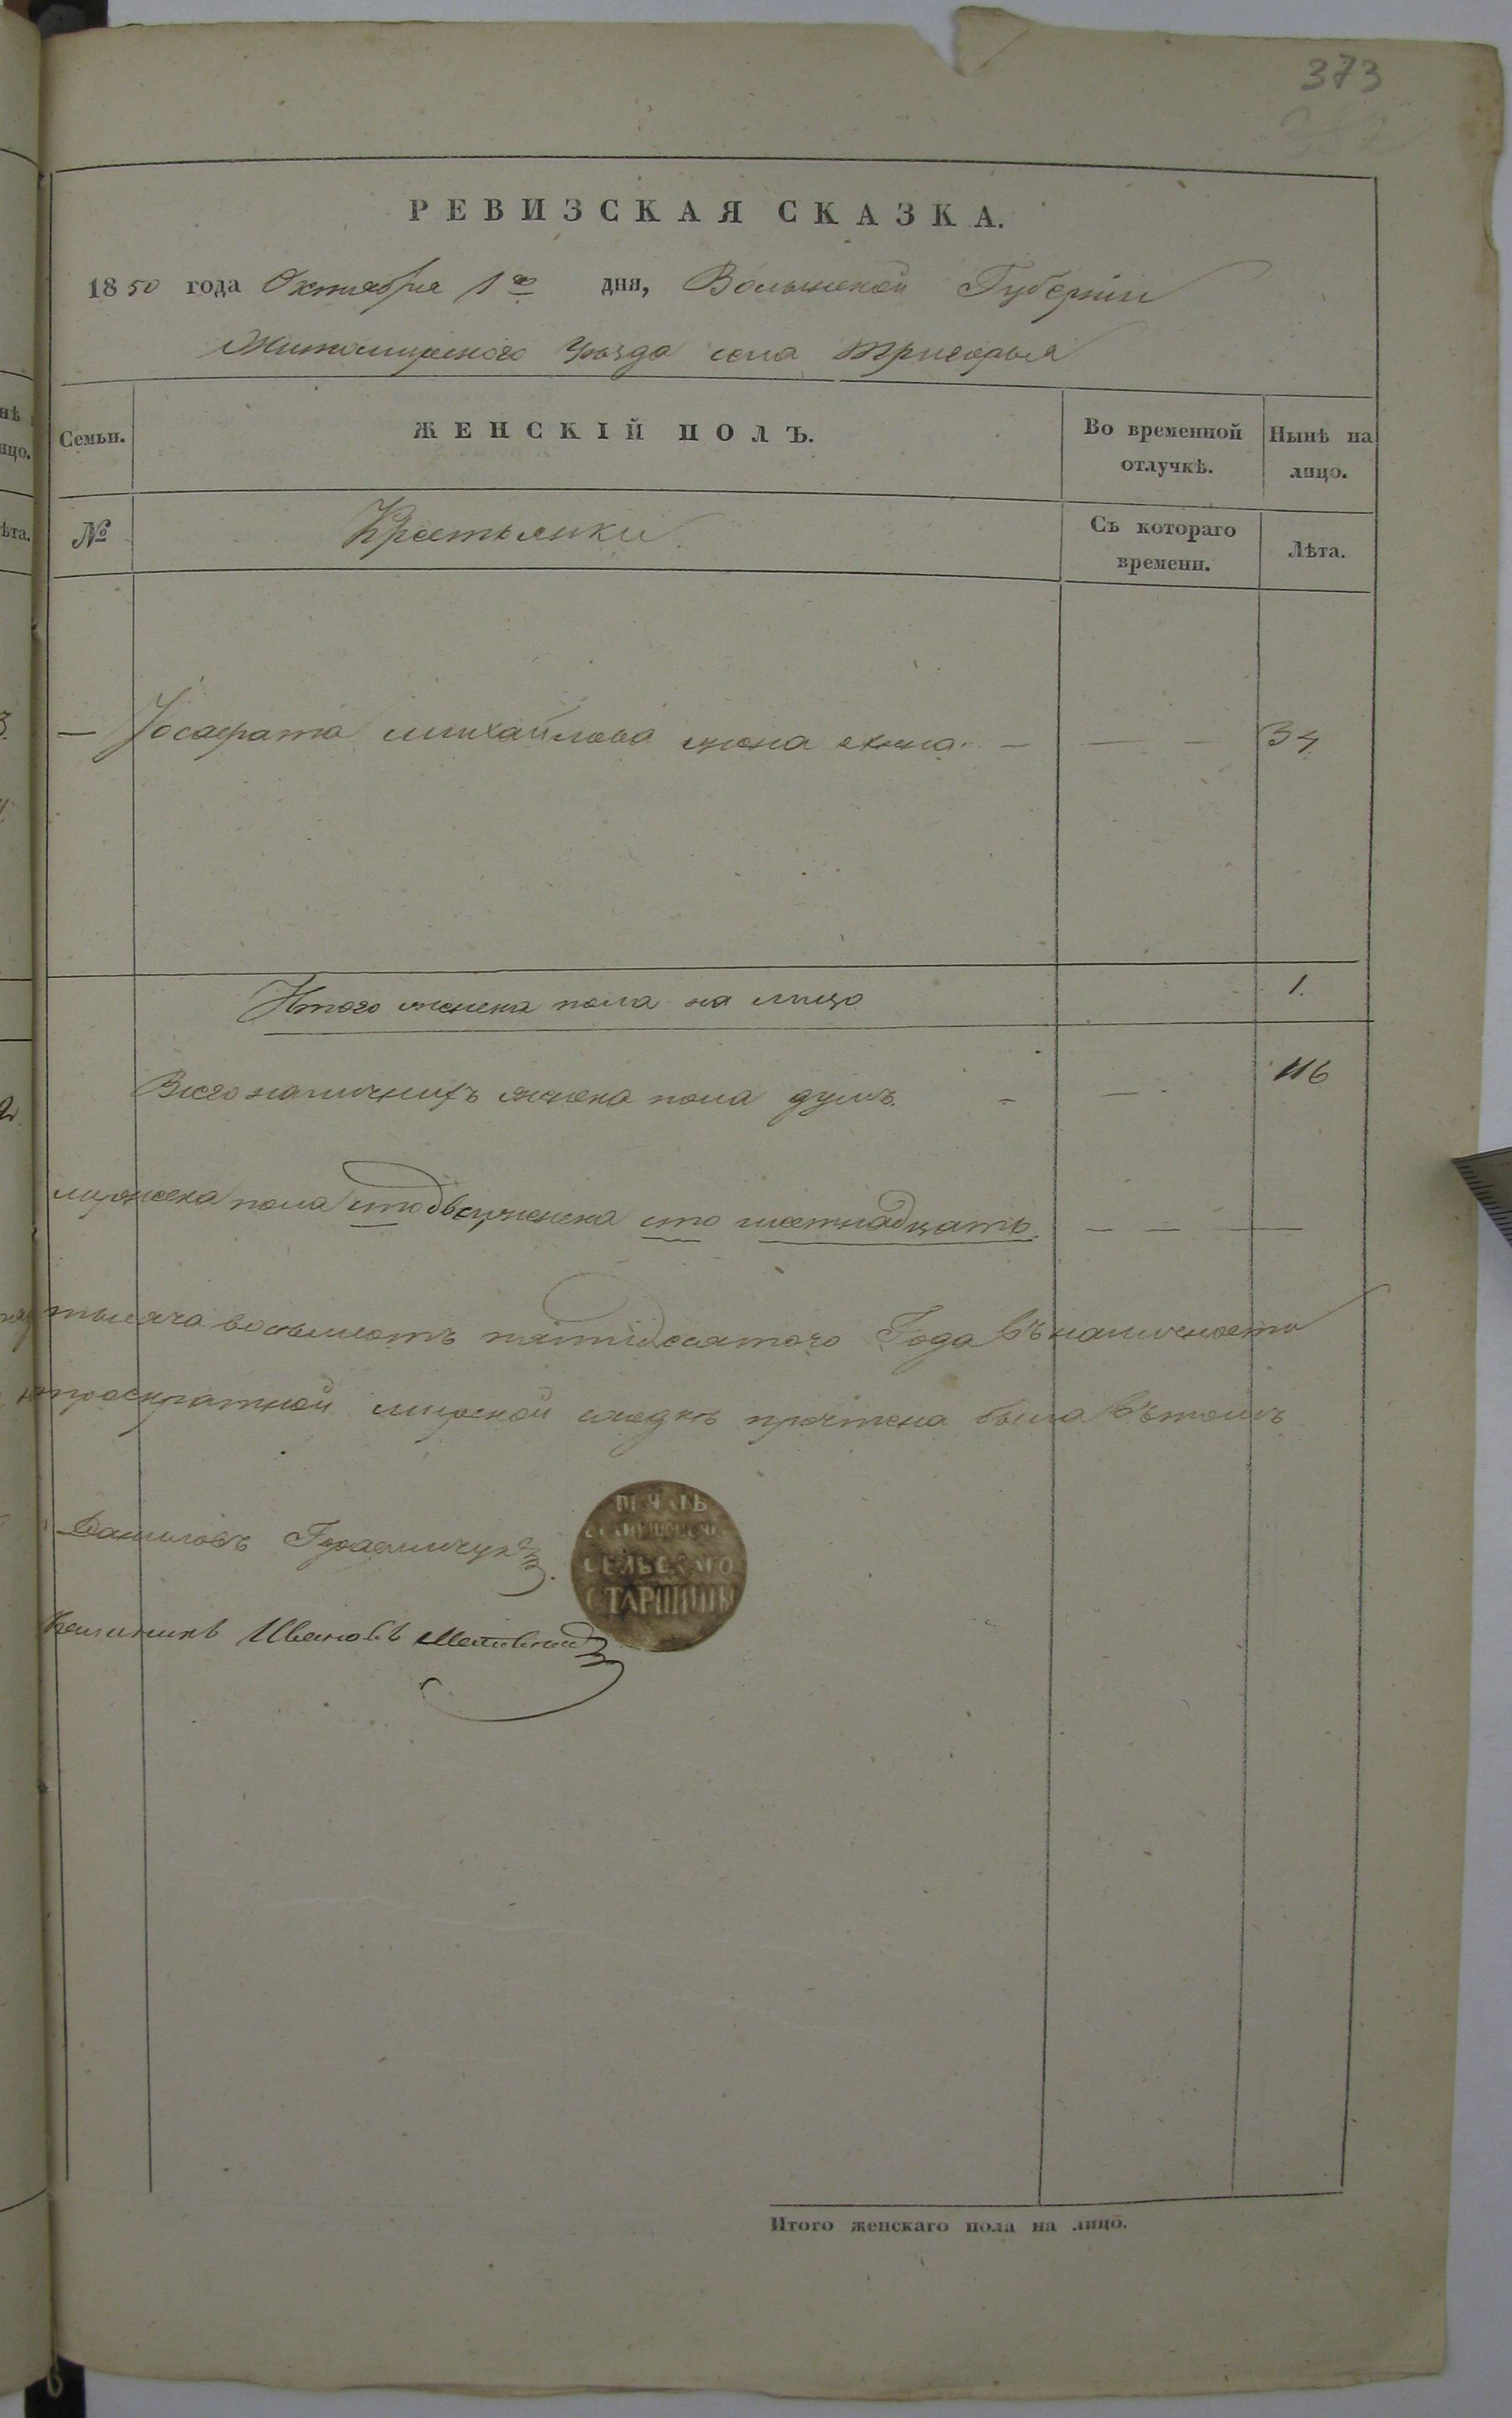 373
РЕВИЗСКАЯ СКАЗКА.
1850 года Октября 1го дня, Волынской Губерніи
Житомирского Уезда села Тригорья
Семьи. ЖЕНСКІЙ ПОЛЪ. Во временной отлучкѣ. Нынѣ на лицо.
№ Крестьянки Съ котораго времени. Лѣта.
— Іосафата Михайлова жена — — — 34
Итого женска пола на лицо 1.
Всего наличнихъ женска пола душъ - — - 116
мужеска пола сто женска сто шестнадцать. — — —
тысяча восемьсотъ пятидесятого Года въ наличности
троекратной мирской сходке прочтена была въ томъ
Даниловъ Герасимчукъ
ПЕЧАТЬ
СЕЛЬСКАГО
СТАРШИНЫ
Ивановъ
Итого женскаго пола на лицо.
нѣ
ицо.
ѣта.